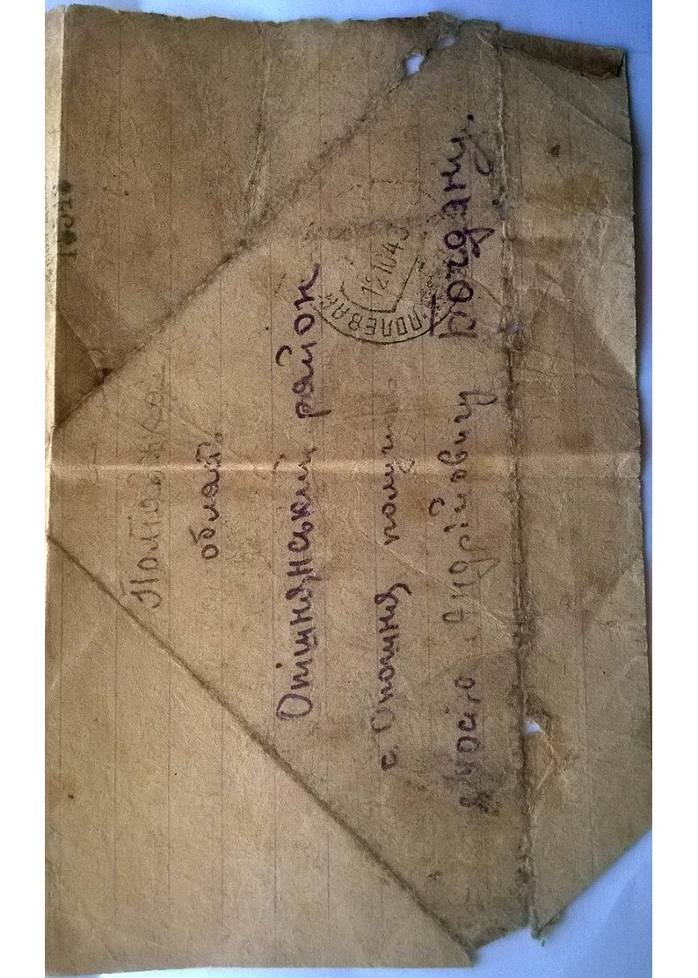 Полтавська
область
Опішнянський район
с. Опошня получить
Андрійовичу Богдану.
ПОЛЕВАЯ
12 IV 43